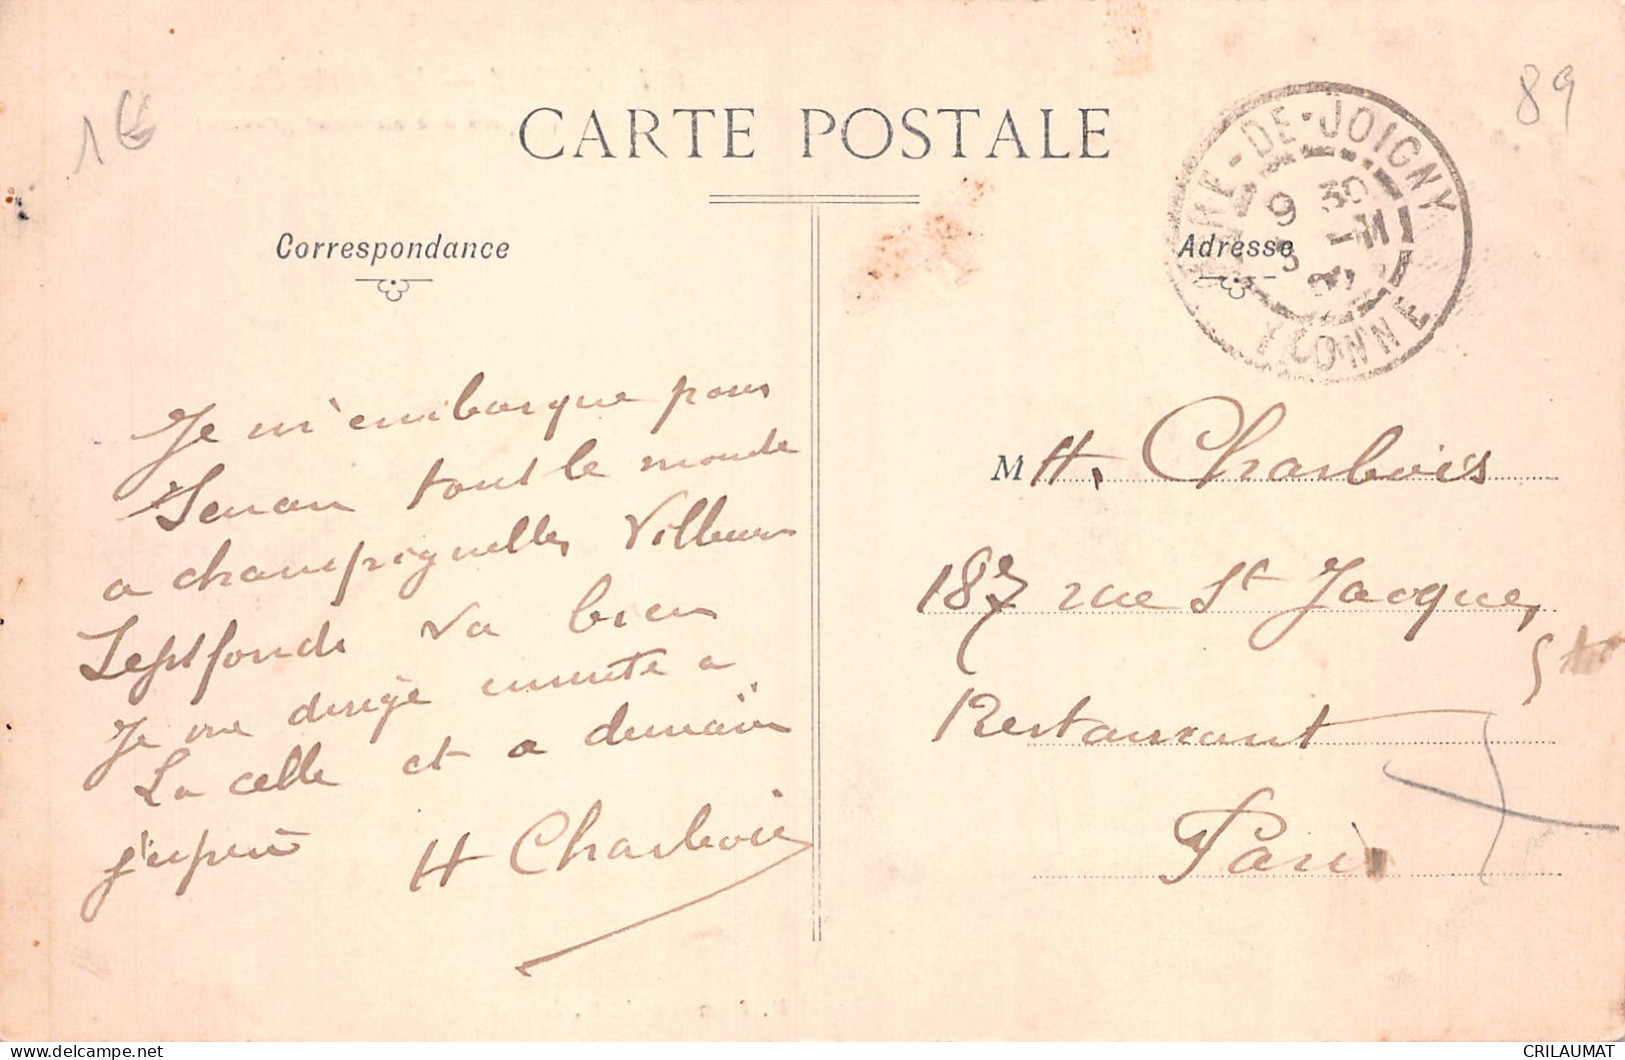 1€
89
CARTE POSTALE
Correspondance
Adresse
DE-JOIGNY
9 30
YONNE
Je m'embarque pour
Senan tout le monde
a champignelles Villeneuve
Septfonds va bien
Je me dirige ensuite a
La celle et a demain
j'espere
H Charlbois
M H. Charlbois
187 rue St Jacques
Restaurant
Paris
CRILAUMAT